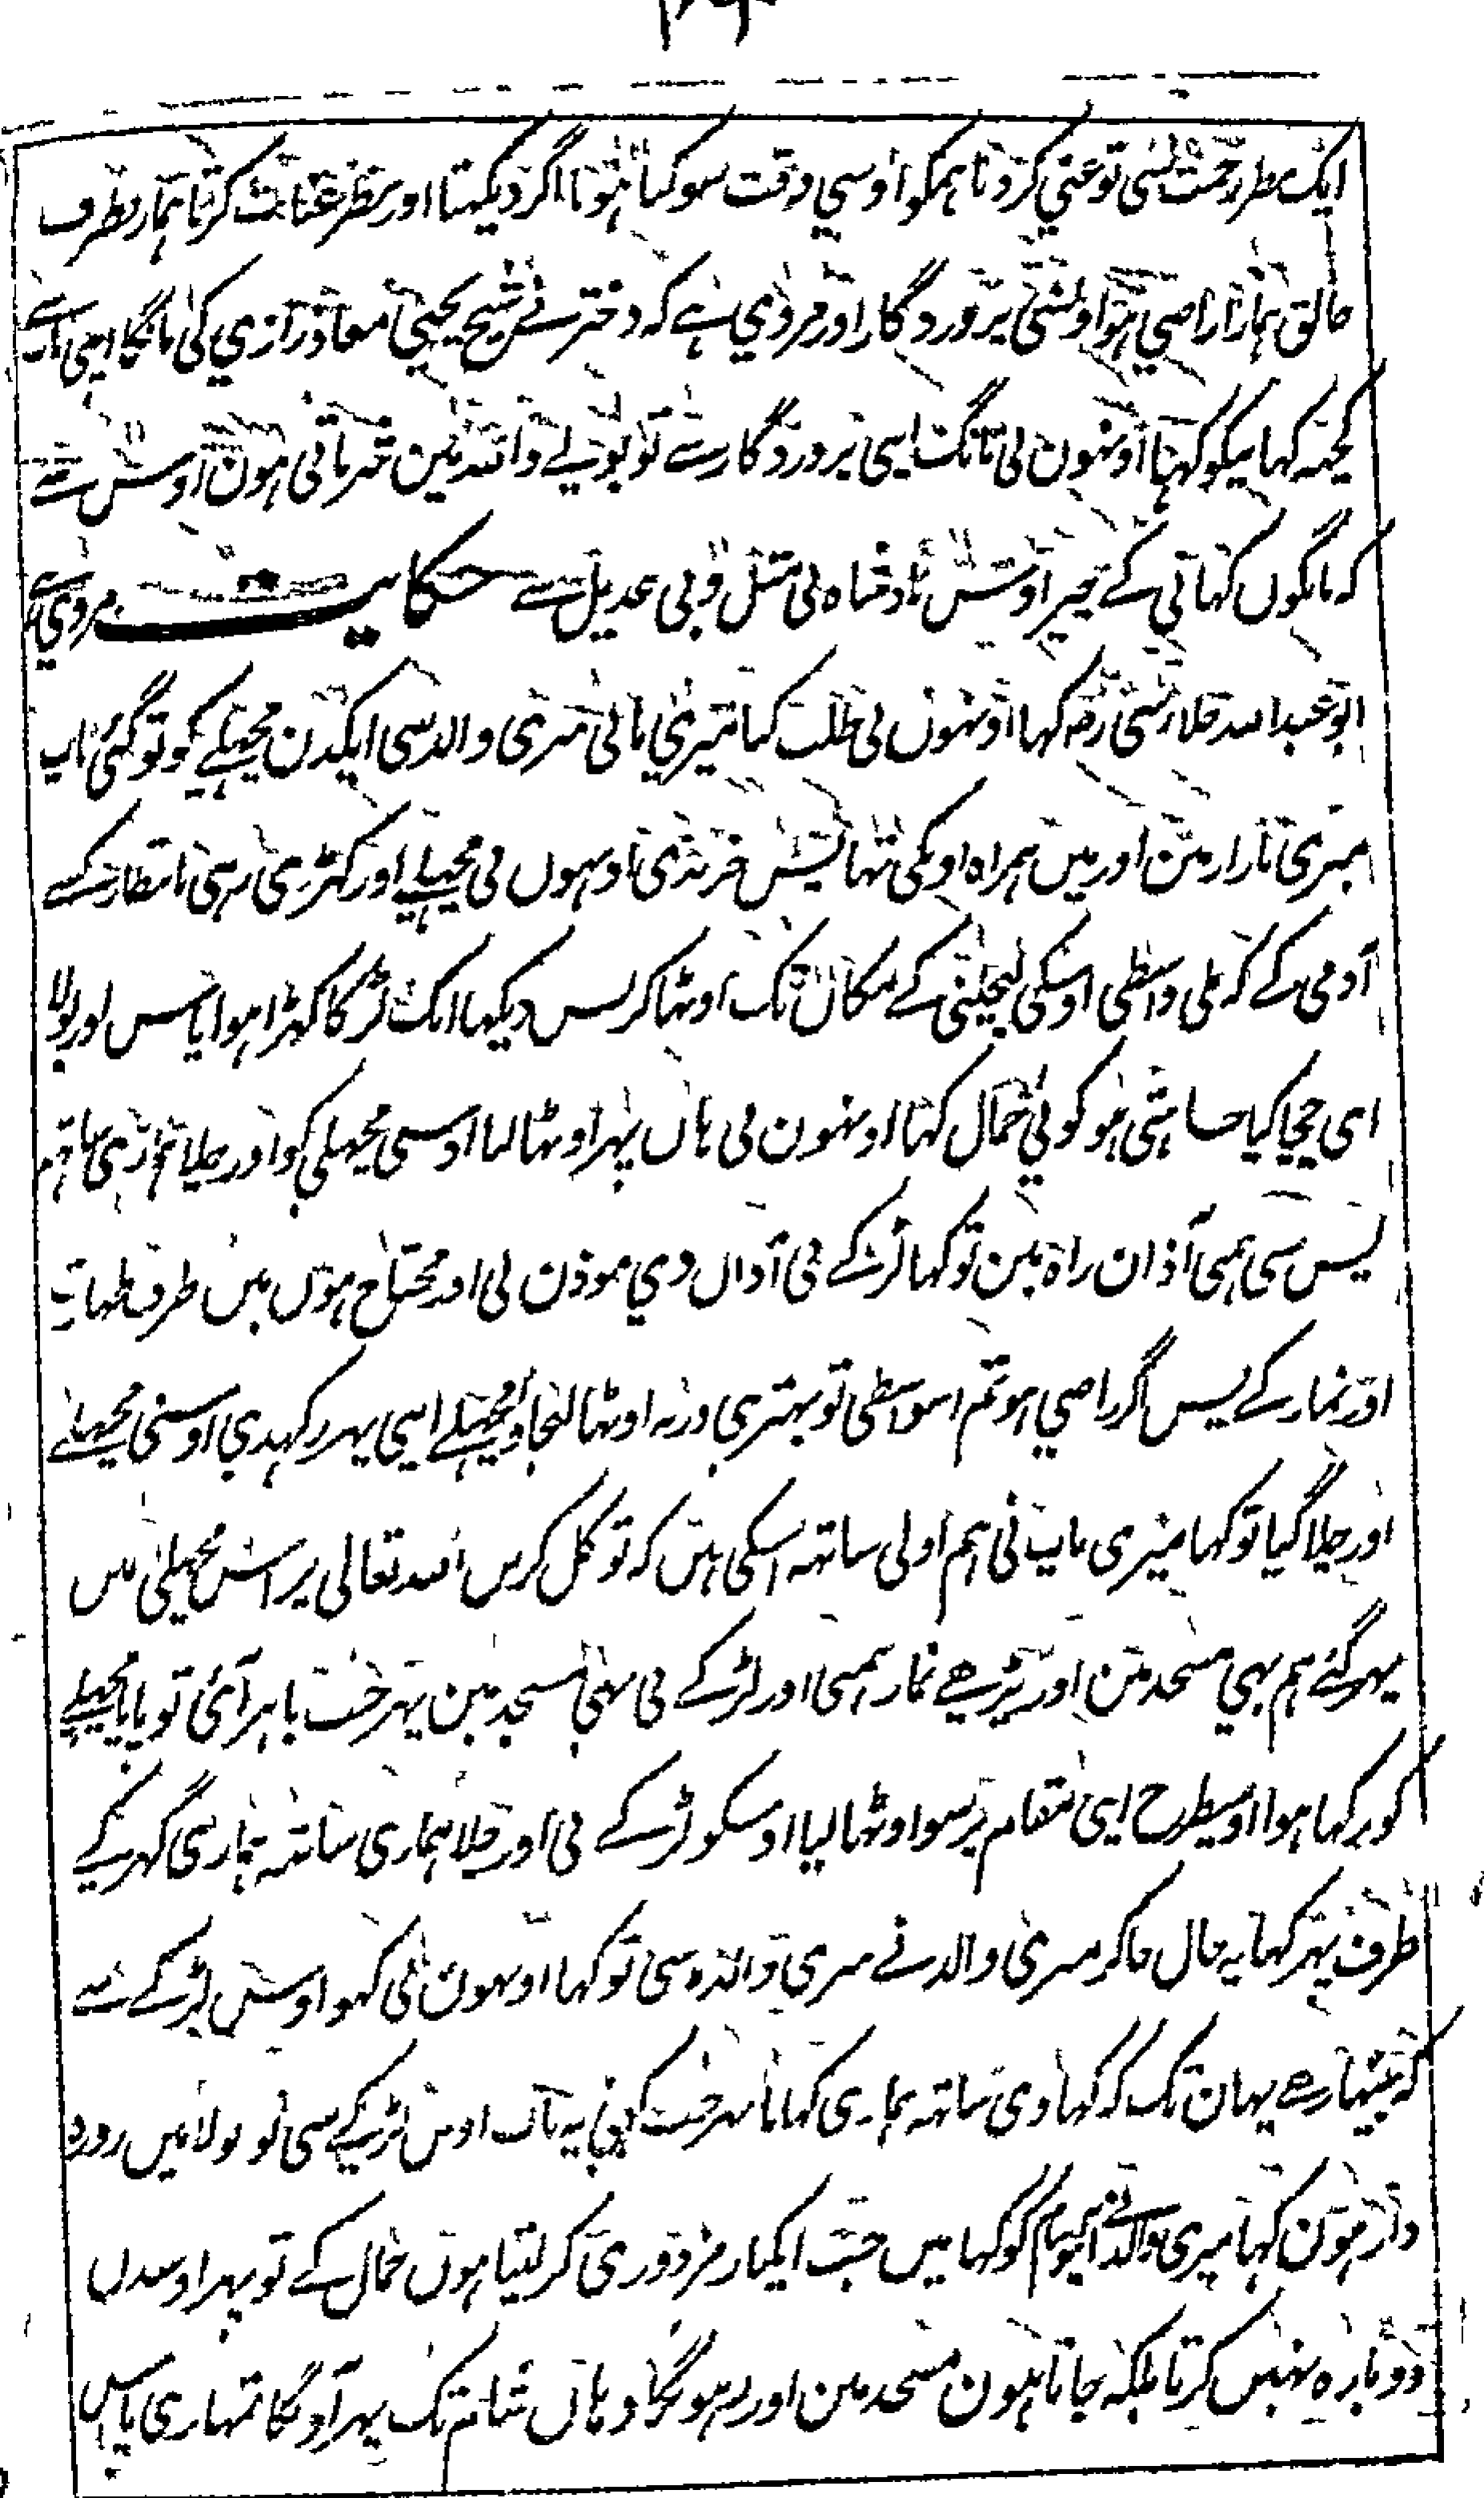 ایک نظر رحمت سی تو غنی کردیا ہمکو اوسی وقت سو کیا ہوتا اگر دیکہتا اور نظر عنایت کرتا ہمار یطرف
خالق ہمارا راضی ہوا وسنی پروردگار اور مروی ہے کہ دختر نے شیخ یحیی معاذ رازی کی مانگا اپی ماسے
کچہہ کہانیکو کہا اونہون نی مانگ اپی پروردگارسے تو بولے واللہ مین شرماتی ہون اوس سے
کہ مانگوں کہانی کے چیز اوس بادشاہ بی مثل وبی عدیل سے حکایت مروی ہے
ابو عبد اللہ قلارسی رض کہا اونہوں نی طلب کیا میری مانی میری والد سی ایکدن مچہلے کو تو گئی باپ
میری بازار مین اور میں ہمراہ اونکی تہا پس خریدی اونہوں نی مچہلے اور کہڑی رہی انتظار کے
آدمی کے کہ ملی واسطی اوسکی لیجانی کے مکان تک اوٹہا کر پس دیکہا ایک لڑکا کہڑا ہوا پاس اور بولا
ای چچا کیا چاہتی ہو کوئی حمال کہا اونہون نی ہاں پہر اوٹہا لیا اوسی مچہلی کو اور چلا ہماری ساتہہ
پس سی ہمی آذان راہ مین تو کہا لڑکے نی آذاں دی موذن نی اور محتاج ہوں میں طرف طہارت
اور نماز کے پس گر راضی ہو تم اسواسطی تو بہتر ہی ورنہ اوٹہا لیجاو مچہلے اپی پہر رکہدی اوسنی مچہلے
اور چلا گیا تو کہا میری باپ نی ہم اولی ساتہہ اسکی ہین کہ توکل کریں اللہ تعالی پر اس مچہلی میں
پہر گئے ہم بہی مسجد مین اور پڑہے نماز ہمی اور لڑکے نی بہی مسجد مین پہر جب باہر آئی تو پایا مچہلے
کو رکہا ہوا اوسیطرح اپی مقام پر سو اوٹہا لیا اوسکو لڑکے نی اور چلا ہماری ساتہہ ہماری گہر کے
طرف پہر کہا یہ حال جاکر میری والد نے میری والدہ سی تو کہا اونہون نی کہو اوس لڑکے سے
کہ بیٹہا رہے یہان تک کہ کہاوی ساتہہ ہماری کہانا پہر جب کہی یہ بات اوس لڑکے سی تو بولا میں روزہ
دار ہون کہا میری والد نے شام کو کہا میں جب ایکبار مزدوری کر لیتا ہوں حمال کے تو پہر اوسدن
دوبارہ نہیں کرتا بلکہ جاتا ہون مسجد مین اور رہونگا وہاں شام تک پہر آؤنگا تمہاری پاس